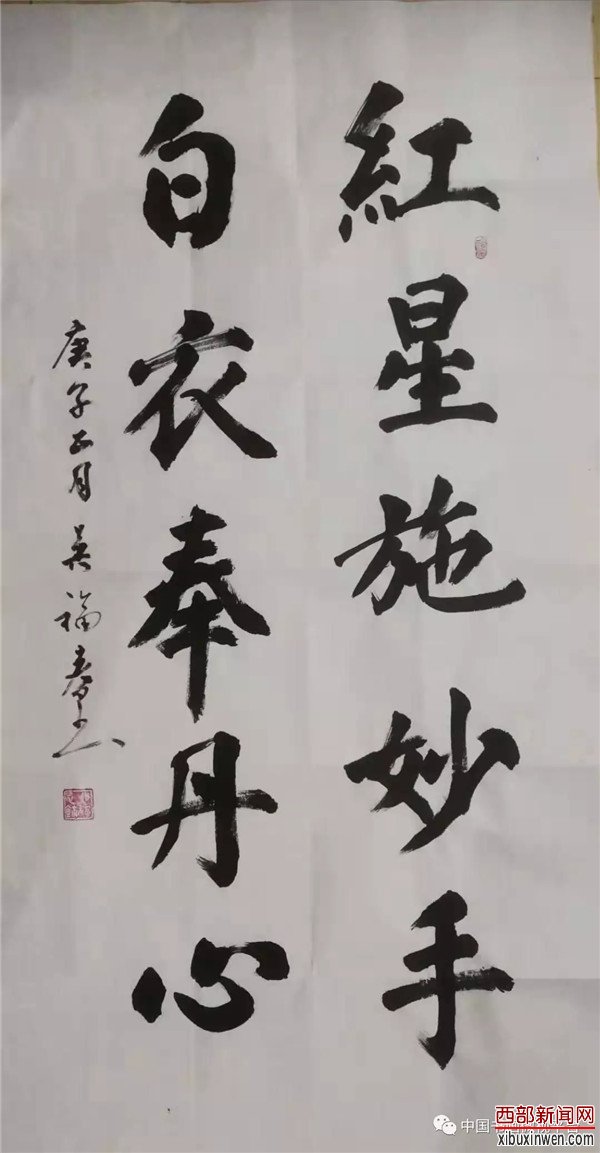 紅星施妙手
白衣奉丹心
庚子正月 吴福春
西部新闻网
xibuxinwen.com